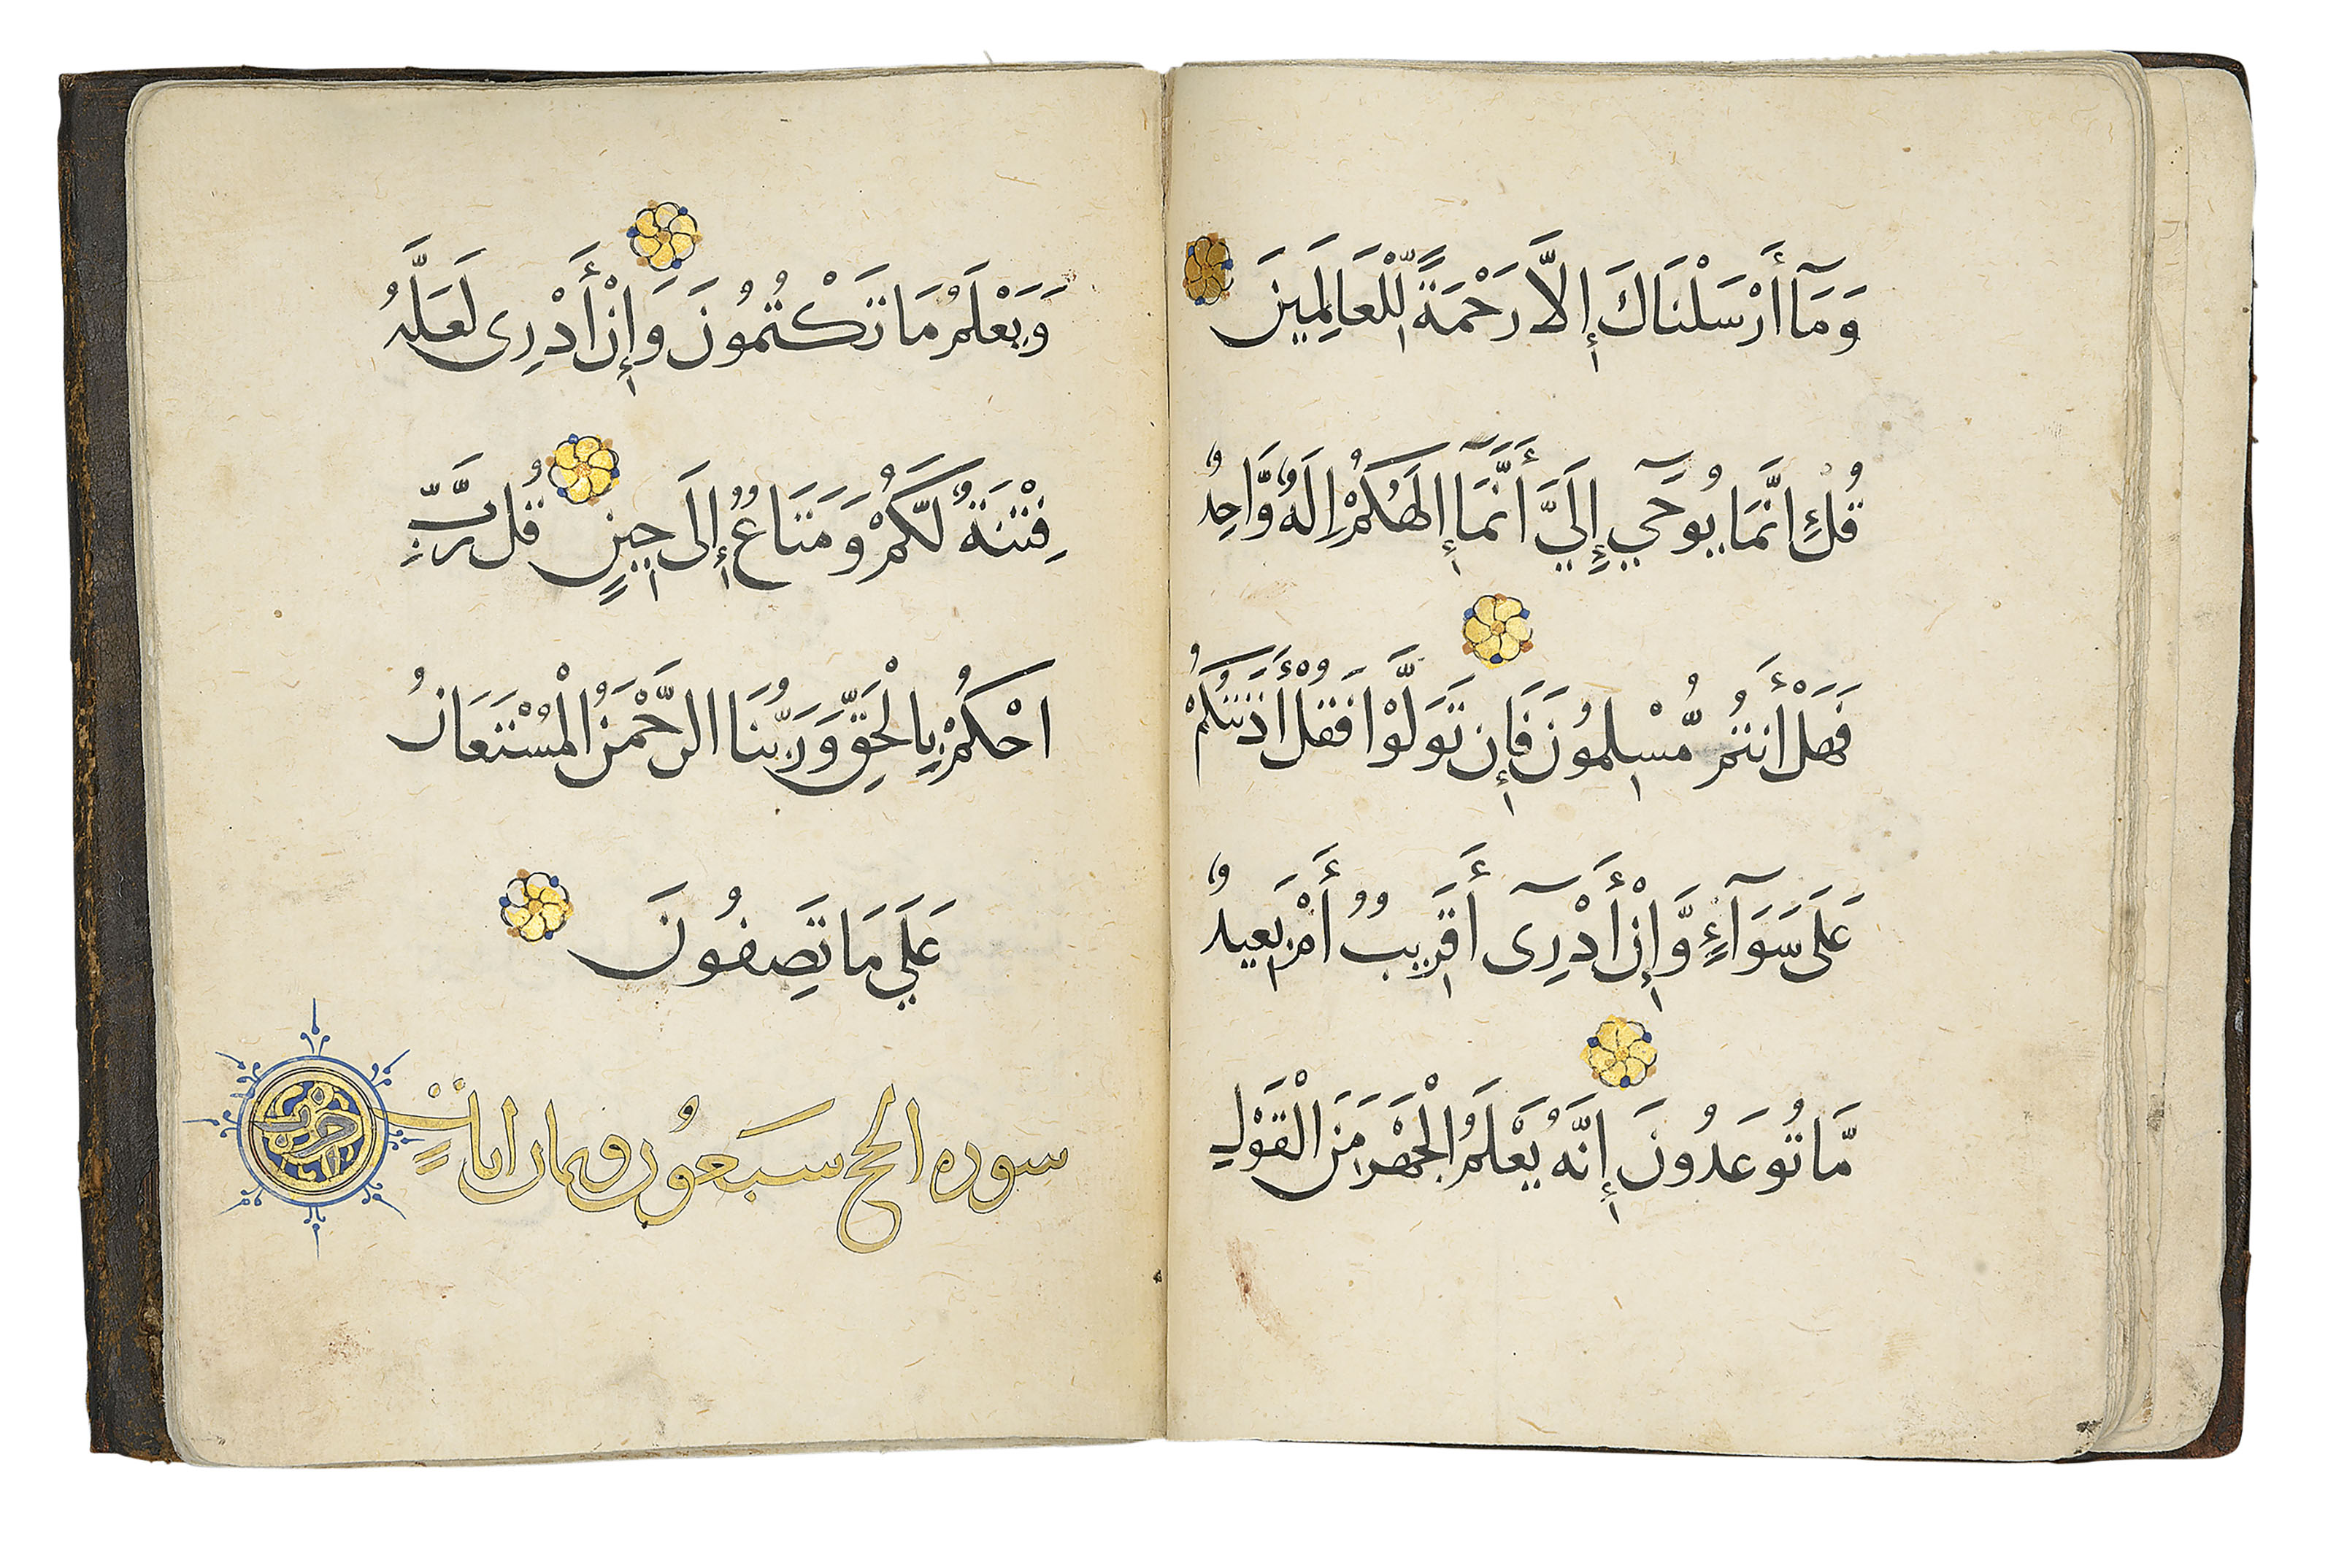 وَمَآ أَرْسَلْنَاكَ إِلَّا رَحْمَةً لِّلْعَالَمِينَ
قُلْ إِنَّمَا يُوحَىٰ إِلَيَّ أَنَّمَآ إِلَهُكُمْ إِلَهٌ وَّاحِدٌ
فَهَلْ أَنتُم مُّسْلِمُونَ فَإِن تَوَلَّوْا فَقُلْ أَذَنتُكُمْ
عَلَى سَوَآءٍ وَّإِنْ أَدْرِىٓ أَقَرِيبٌ أَمْ بَعِيدٌ
مَّا تُوعَدُونَ إِنَّهُ يَعْلَمُ الْجَهْرَ مِنَ الْقَوْلِ
وَيَعْلَمُ مَا تَكْتُمُونَ وَإِنْ أَدْرِى لَعَلَّهُ
فِتْنَةٌ لَّكُمْ وَمَتَاعٌ إِلَى حِينٍ قُل رَّبِّ
احْكُمْ بِالْحَقِّ وَرَبُّنَا الرَّحْمَنُ الْمُسْتَعَانُ
عَلَي مَا تَصِفُونَ
سوره الحج سبعون وثمان ايات
حزب